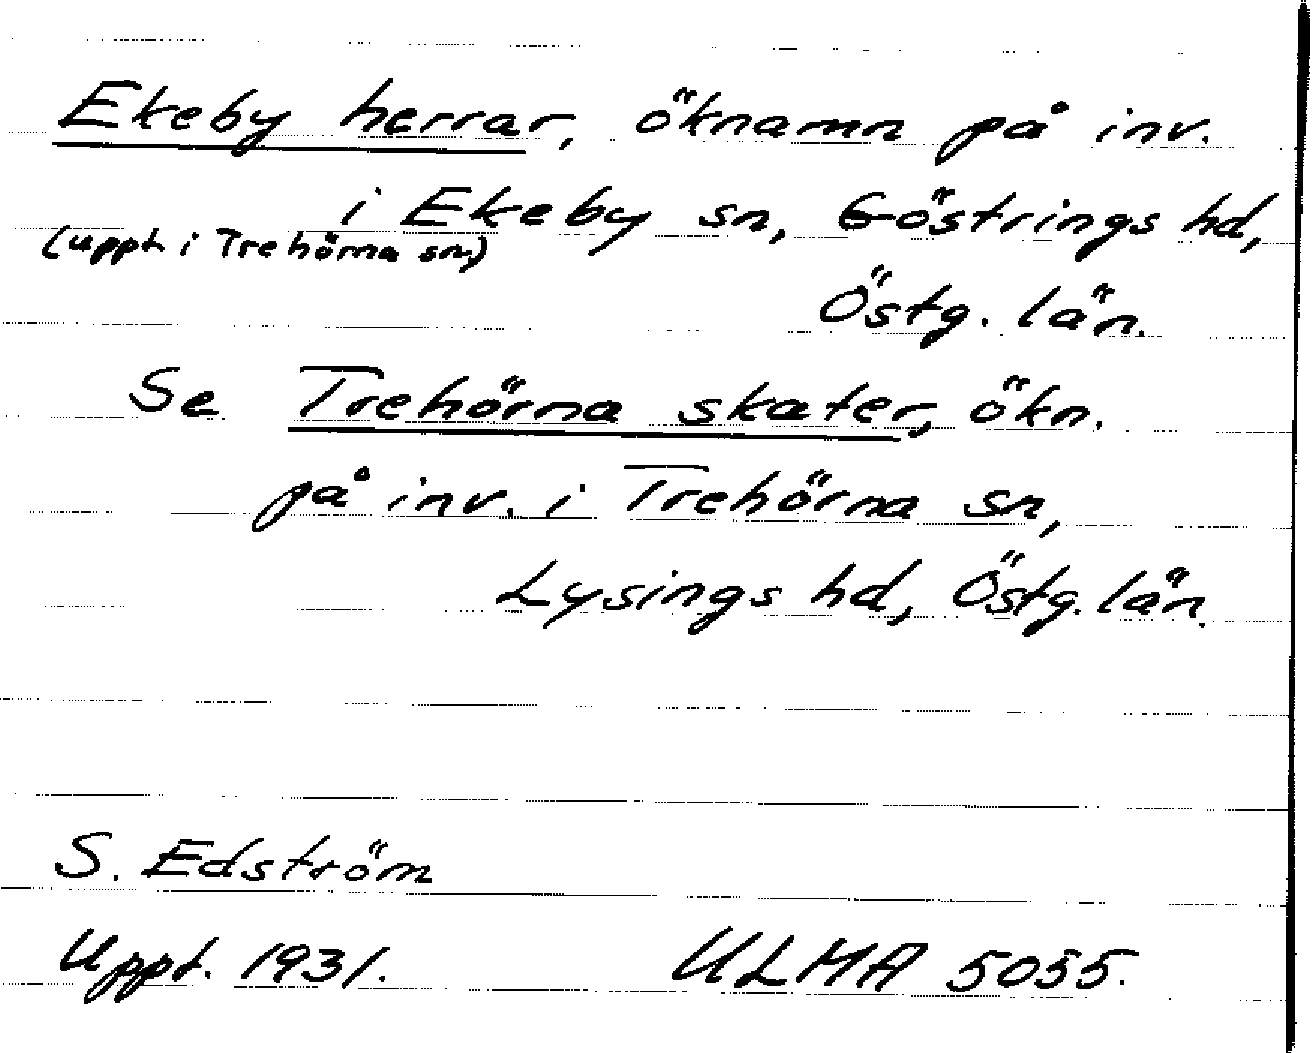 Ekeby herrar, öknamn på inv.
i Ekeby sn, Göstrings hd,
(uppt. i Trehörna sn)
Östg. län.
Se Trehörna skater, ökn.
på inv. i Trehörna sn,
Lysings hd, Östg. län.
S. Edström
Uppt. 1931. ULMA 5055.